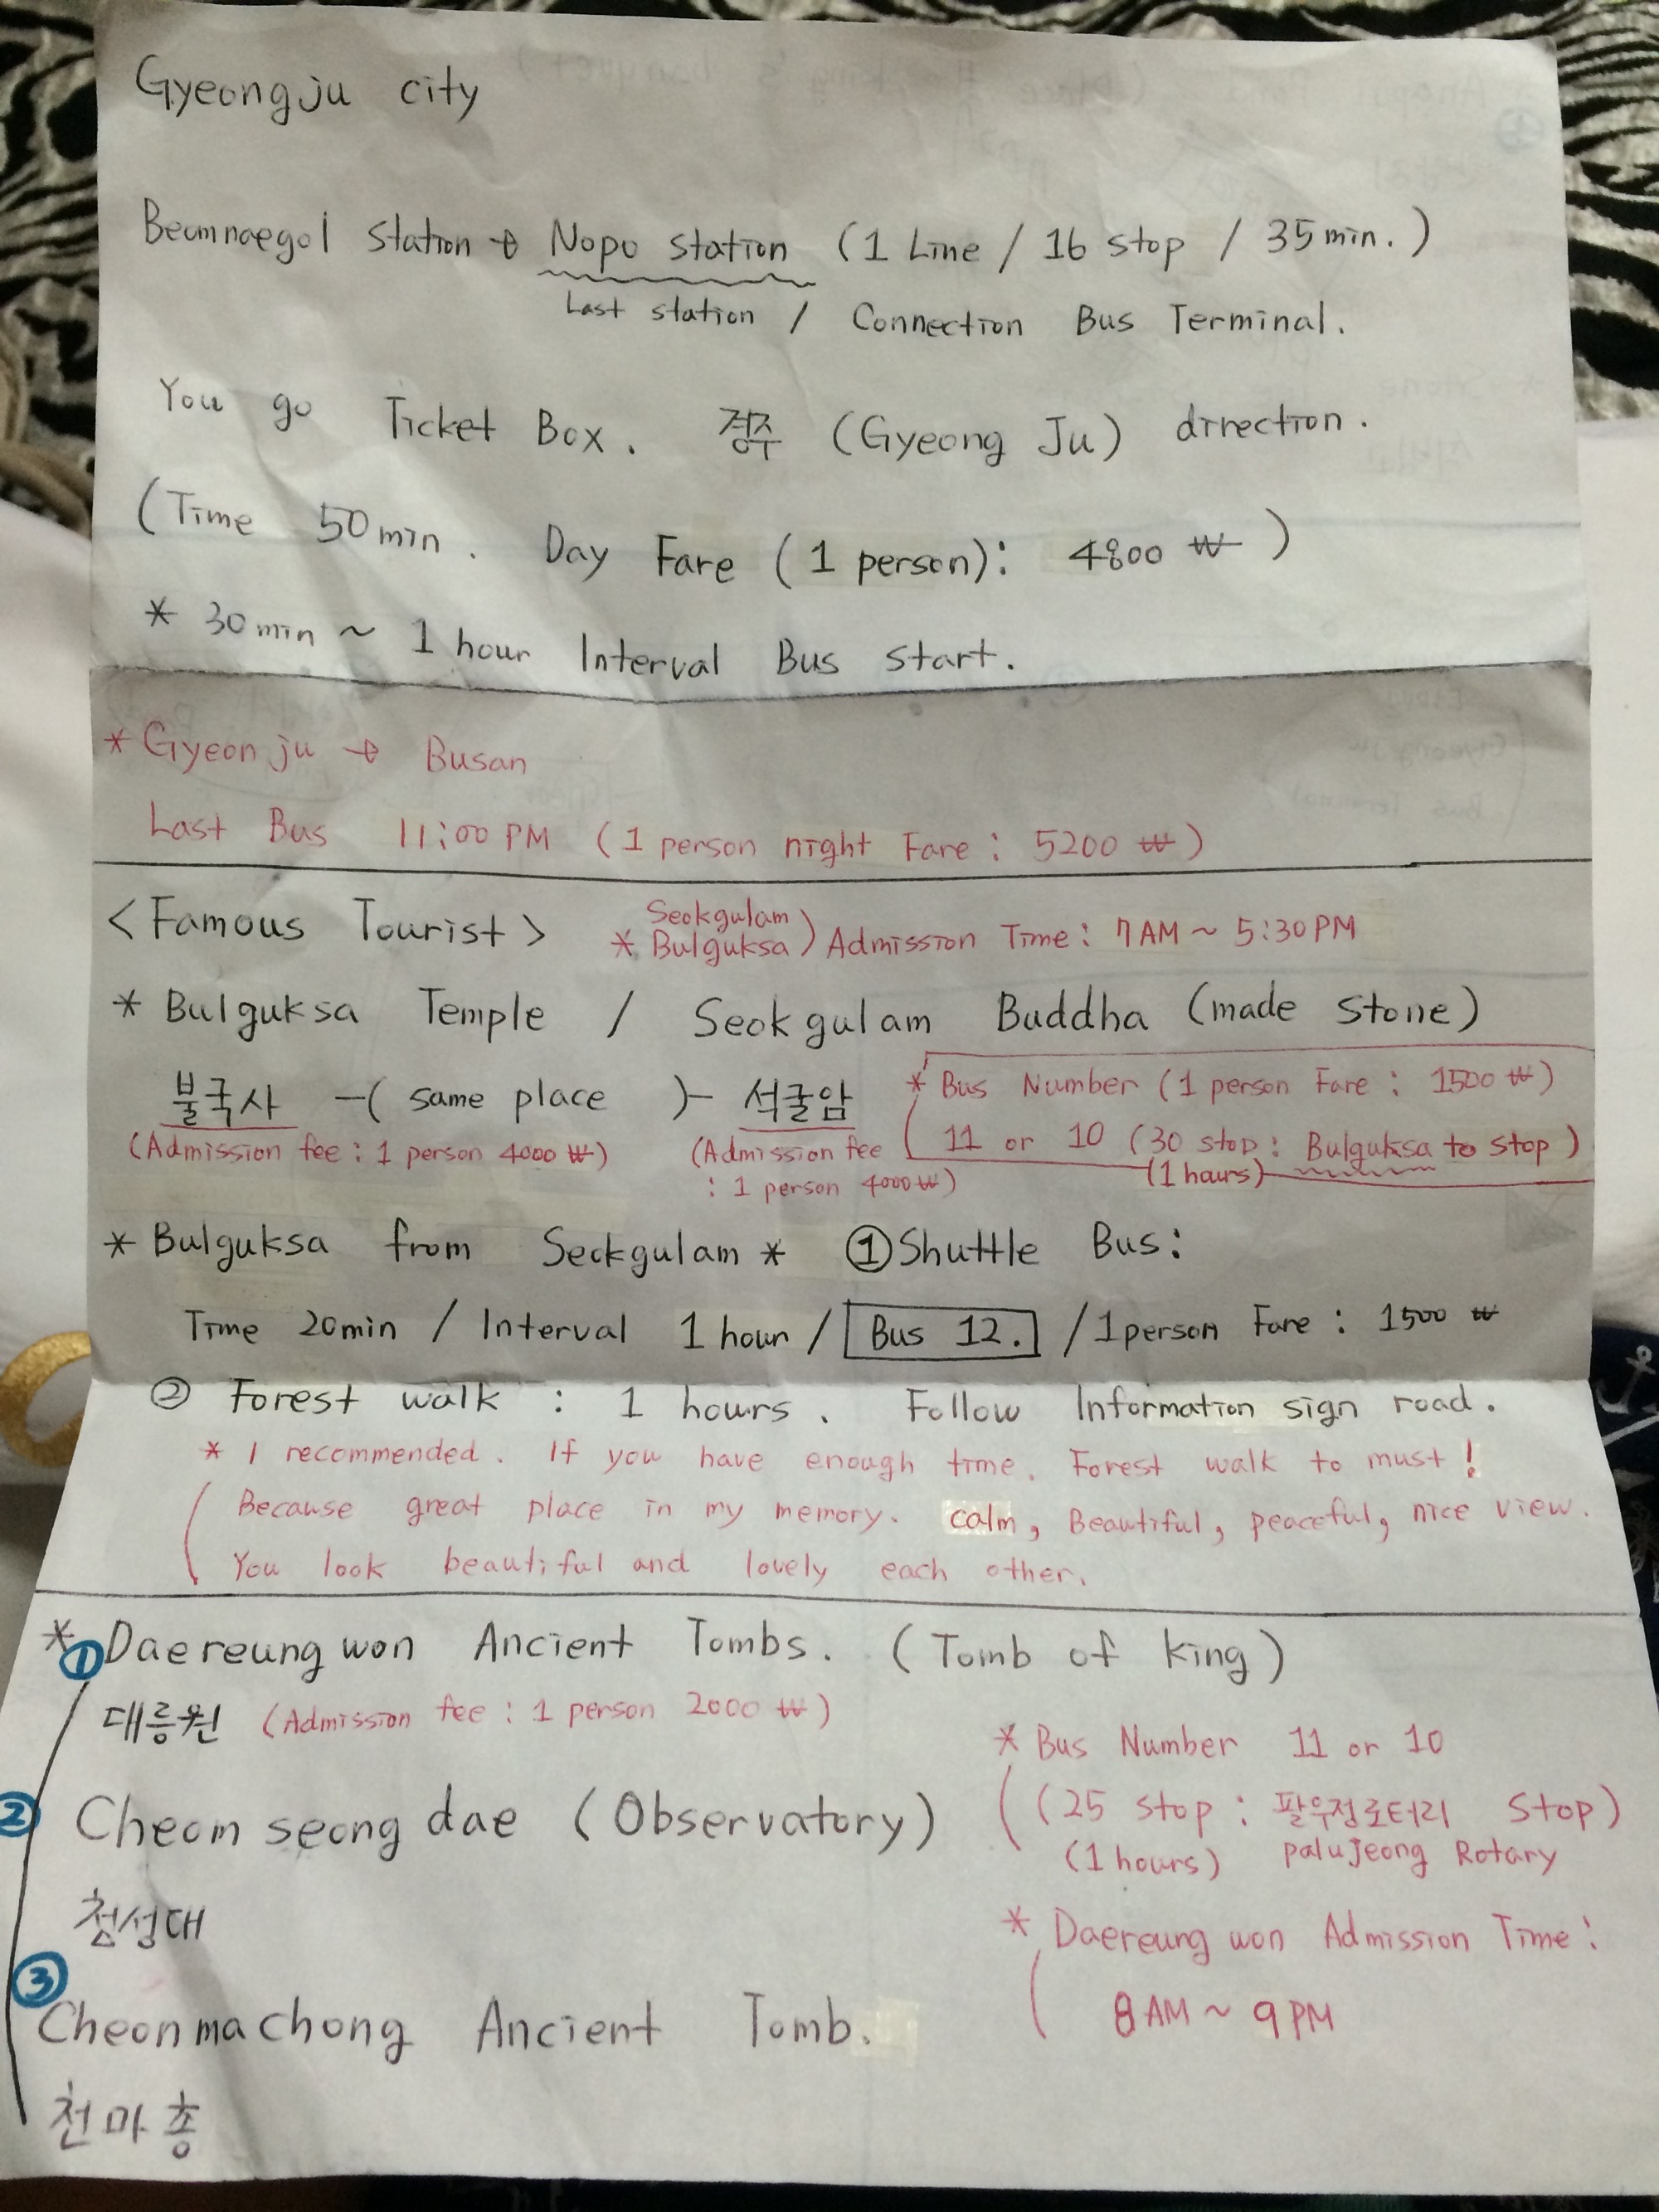 Gyeongju city
Beomnaegol Station → Nopo station (1 Line / 16 stop / 35 min.)
Last station / Connection Bus Terminal.
You go Ticket Box. 경주 (Gyeong Ju) direction.
(Time 50min. Day Fare (1 person): 4800 ₩)
* 30min ~ 1 hour Interval Bus start.
* Gyeonju → Busan
Last Bus 11:00 PM (1 person night Fare: 5200 ₩)
<Famous Tourist>
Seokgulam
* Bulguksa) Admission Time: 7AM ~ 5:30PM
* Bulguksa Temple / Seokgulam Buddha (made stone)
불국사 -( same place )- 석굴암
(Admission fee: 1 person 4000 ₩)
(Admission fee
: 1 person 4000 ₩)
* Bus Number (1 person Fare: 1500 ₩)
11 or 10 (30 stop: Bulguksa to stop)
(1 hours)
* Bulguksa from Seokgulam * ① Shuttle Bus:
Time 20min / Interval 1 hour / Bus 12. / 1person Fare: 1500 ₩
② Forest walk : 1 hours. Follow Information sign road.
* I recommended. If you have enough time. Forest walk to must!
Because great place in my memory. calm, Beautiful, peaceful, nice view.
You look beautiful and lovely each other.
* ① Daereungwon Ancient Tombs. (Tomb of king)
대릉원 (Admission fee: 1 person 2000 ₩)
* Bus Number 11 or 10
② Cheomseongdae (Observatory)
(25 stop: 팔우정로터리 stop)
(1 hours) palujeong Rotary
첨성대
* Daereungwon Admission Time:
8AM ~ 9PM
③ Cheonmachong Ancient Tomb.
천마총